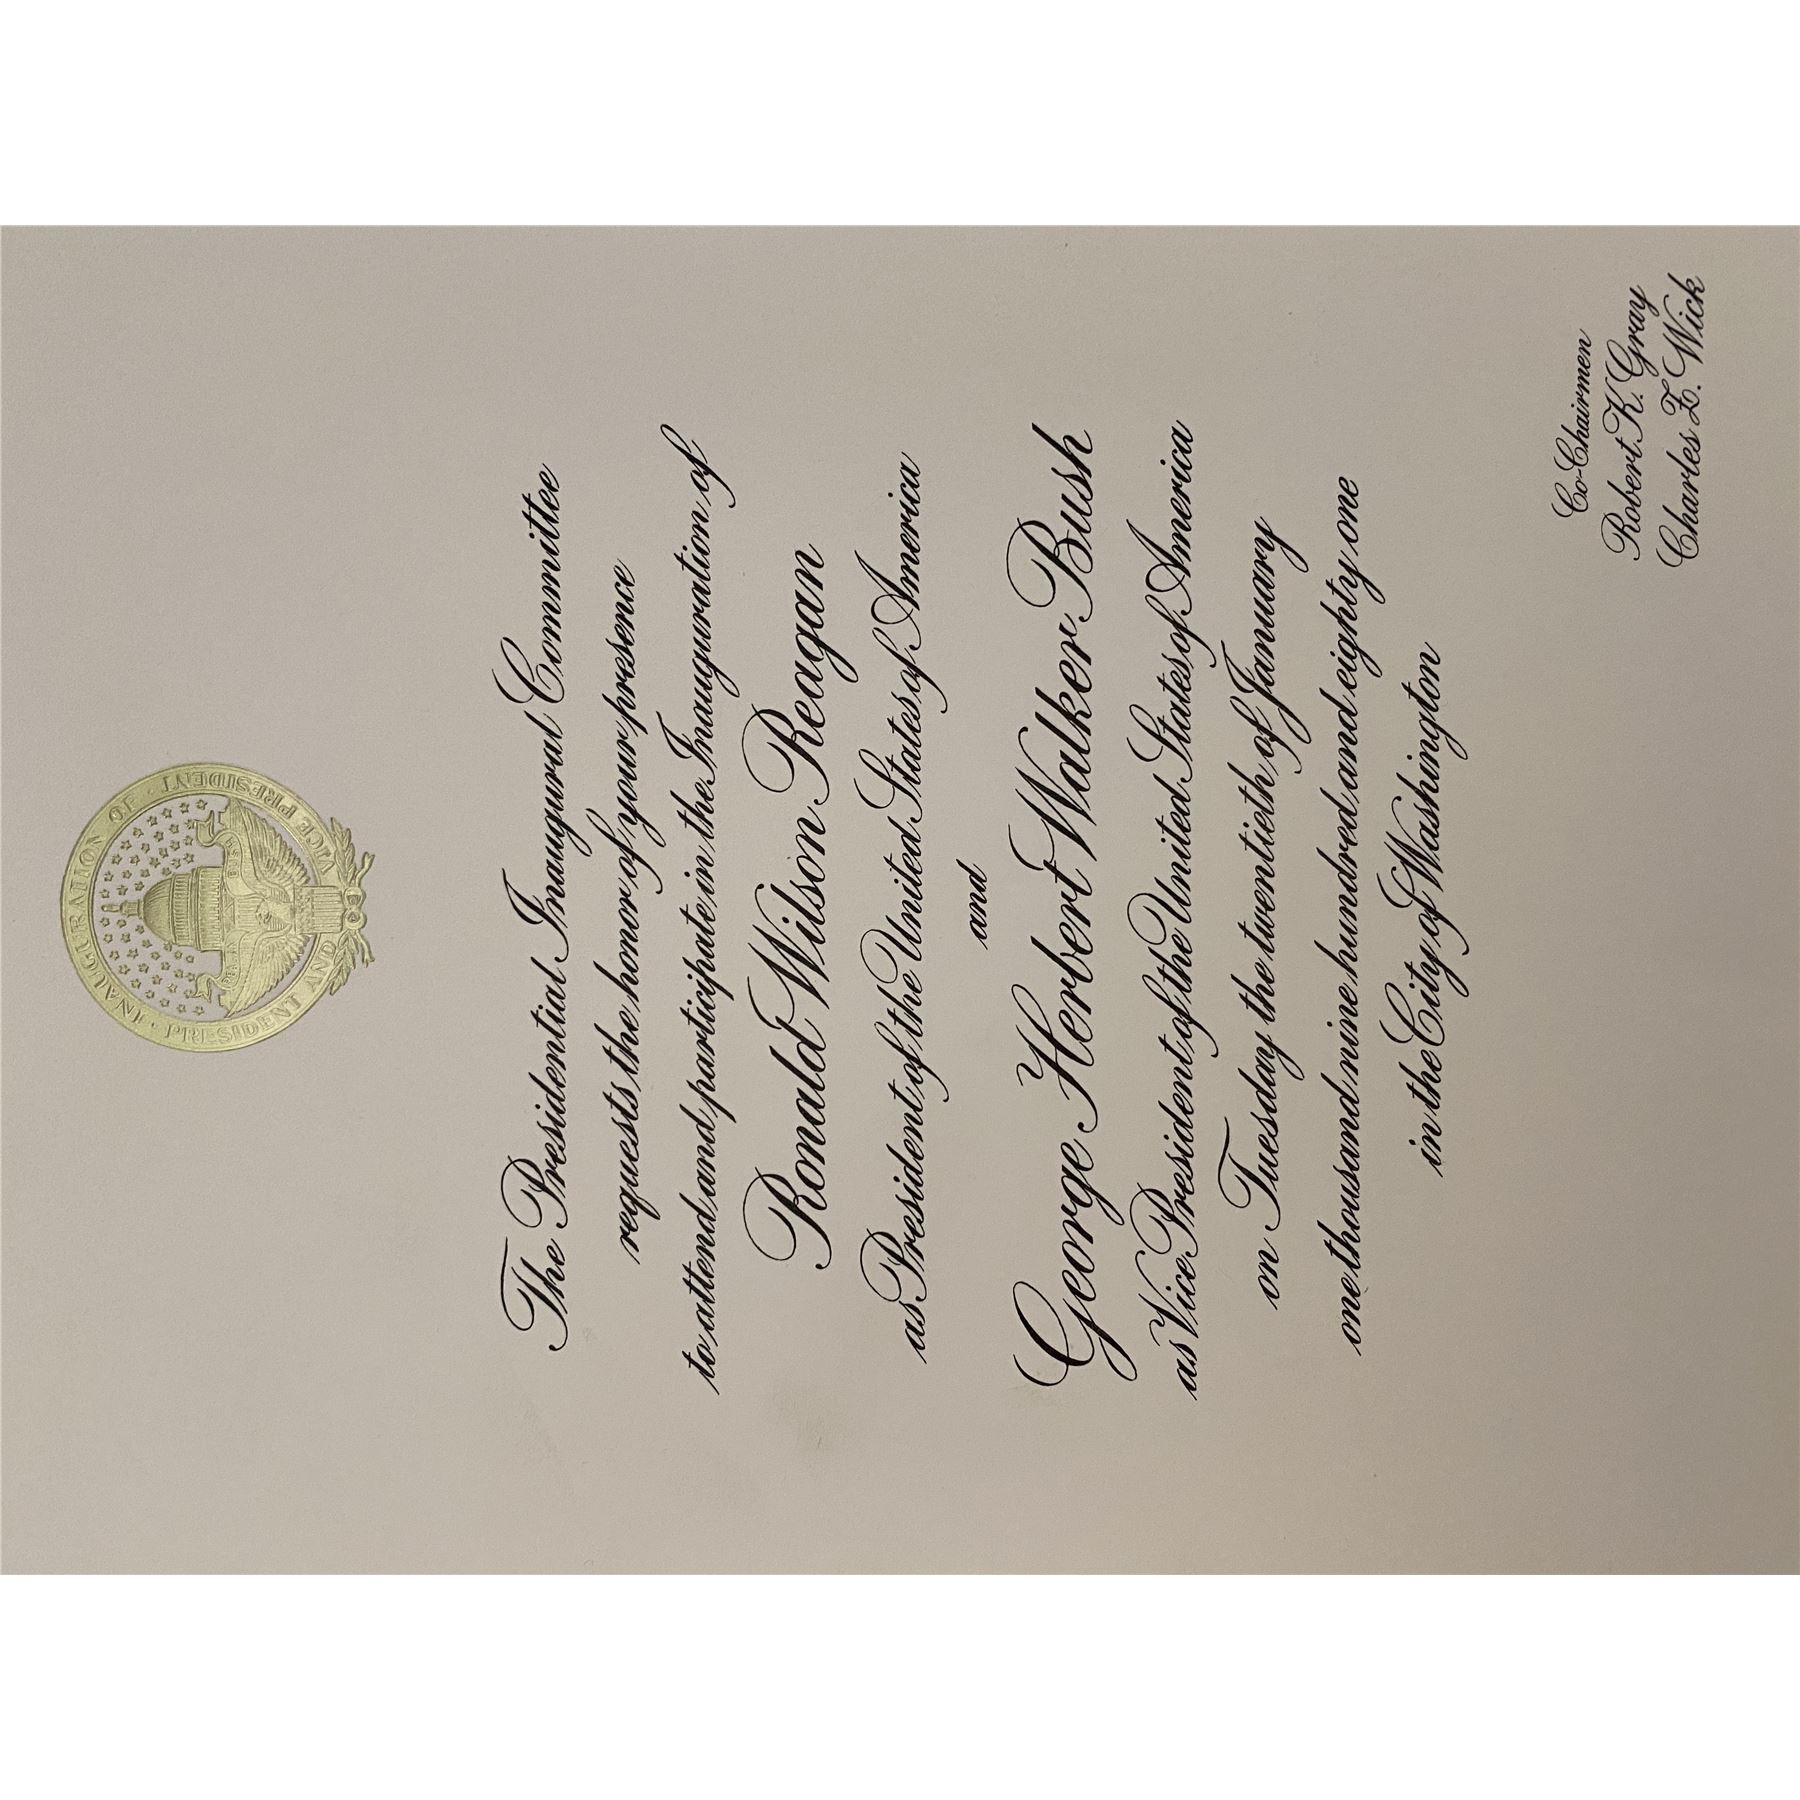 INAUGURATION OF · PRESIDENT ·
PRESIDENT AND VICE PRESIDENT
REAGAN BUSH
The Presidential Inaugural Committee
requests the honor of your presence
to attend and participate in the Inauguration of
Ronald Wilson Reagan
as President of the United States of America
and
George Herbert Walker Bush
as Vice President of the United States of America
on Tuesday the twentieth of January
one thousand nine hundred and eighty one
in the City of Washington
Co-Chairmen
Robert K. Gray
Charles Z. Wick